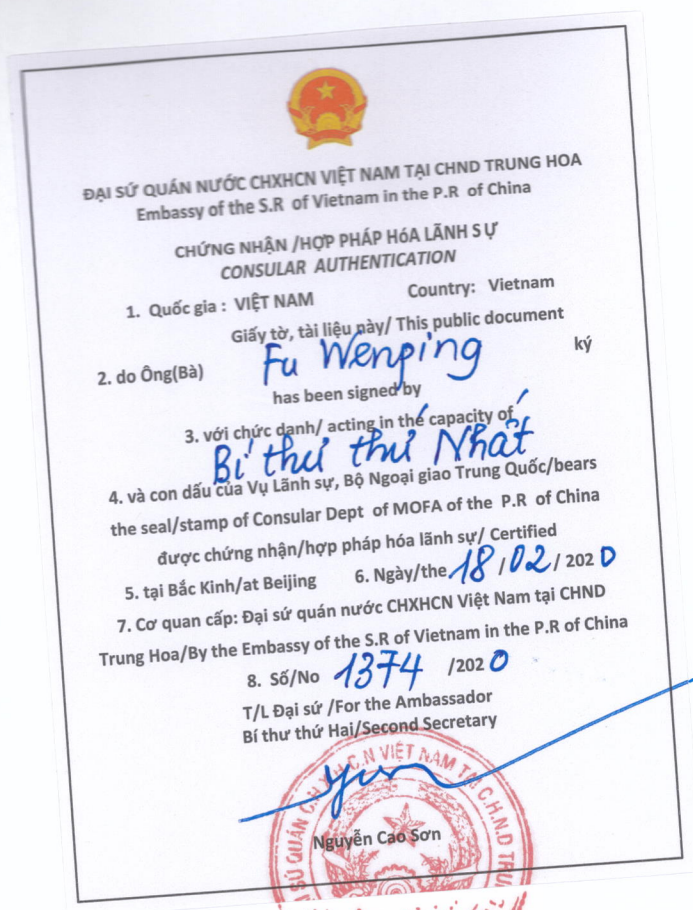 ĐẠI SỨ QUÁN NƯỚC CHXHCN VIỆT NAM TẠI CHND TRUNG HOA
Embassy of the S.R of Vietnam in the P.R of China
CHỨNG NHẬN /HỢP PHÁP HÓA LÃNH SỰ
CONSULAR AUTHENTICATION
1. Quốc gia : VIỆT NAM Country: Vietnam
Giấy tờ, tài liệu này/ This public document
2. do Ông(Bà) Fu Wenping ký
has been signed by
3. với chức danh/ acting in the capacity of
Bí thư thứ Nhất
4. và con dấu của Vụ Lãnh sự, Bộ Ngoại giao Trung Quốc/bears
the seal/stamp of Consular Dept of MOFA of the P.R of China
được chứng nhận/hợp pháp hóa lãnh sự/ Certified
5. tại Bắc Kinh/at Beijing 6. Ngày/the 18/02/2020
7. Cơ quan cấp: Đại sứ quán nước CHXHCN Việt Nam tại CHND
Trung Hoa/By the Embassy of the S.R of Vietnam in the P.R of China
8. Số/No 1374 /2020
T/L Đại sứ /For the Ambassador
Bí thư thứ Hai/Second Secretary
SỨ QUÁN C.H.X.H.C.N VIỆT NAM TẠI C.H.N.D
Nguyễn Cao Sơn